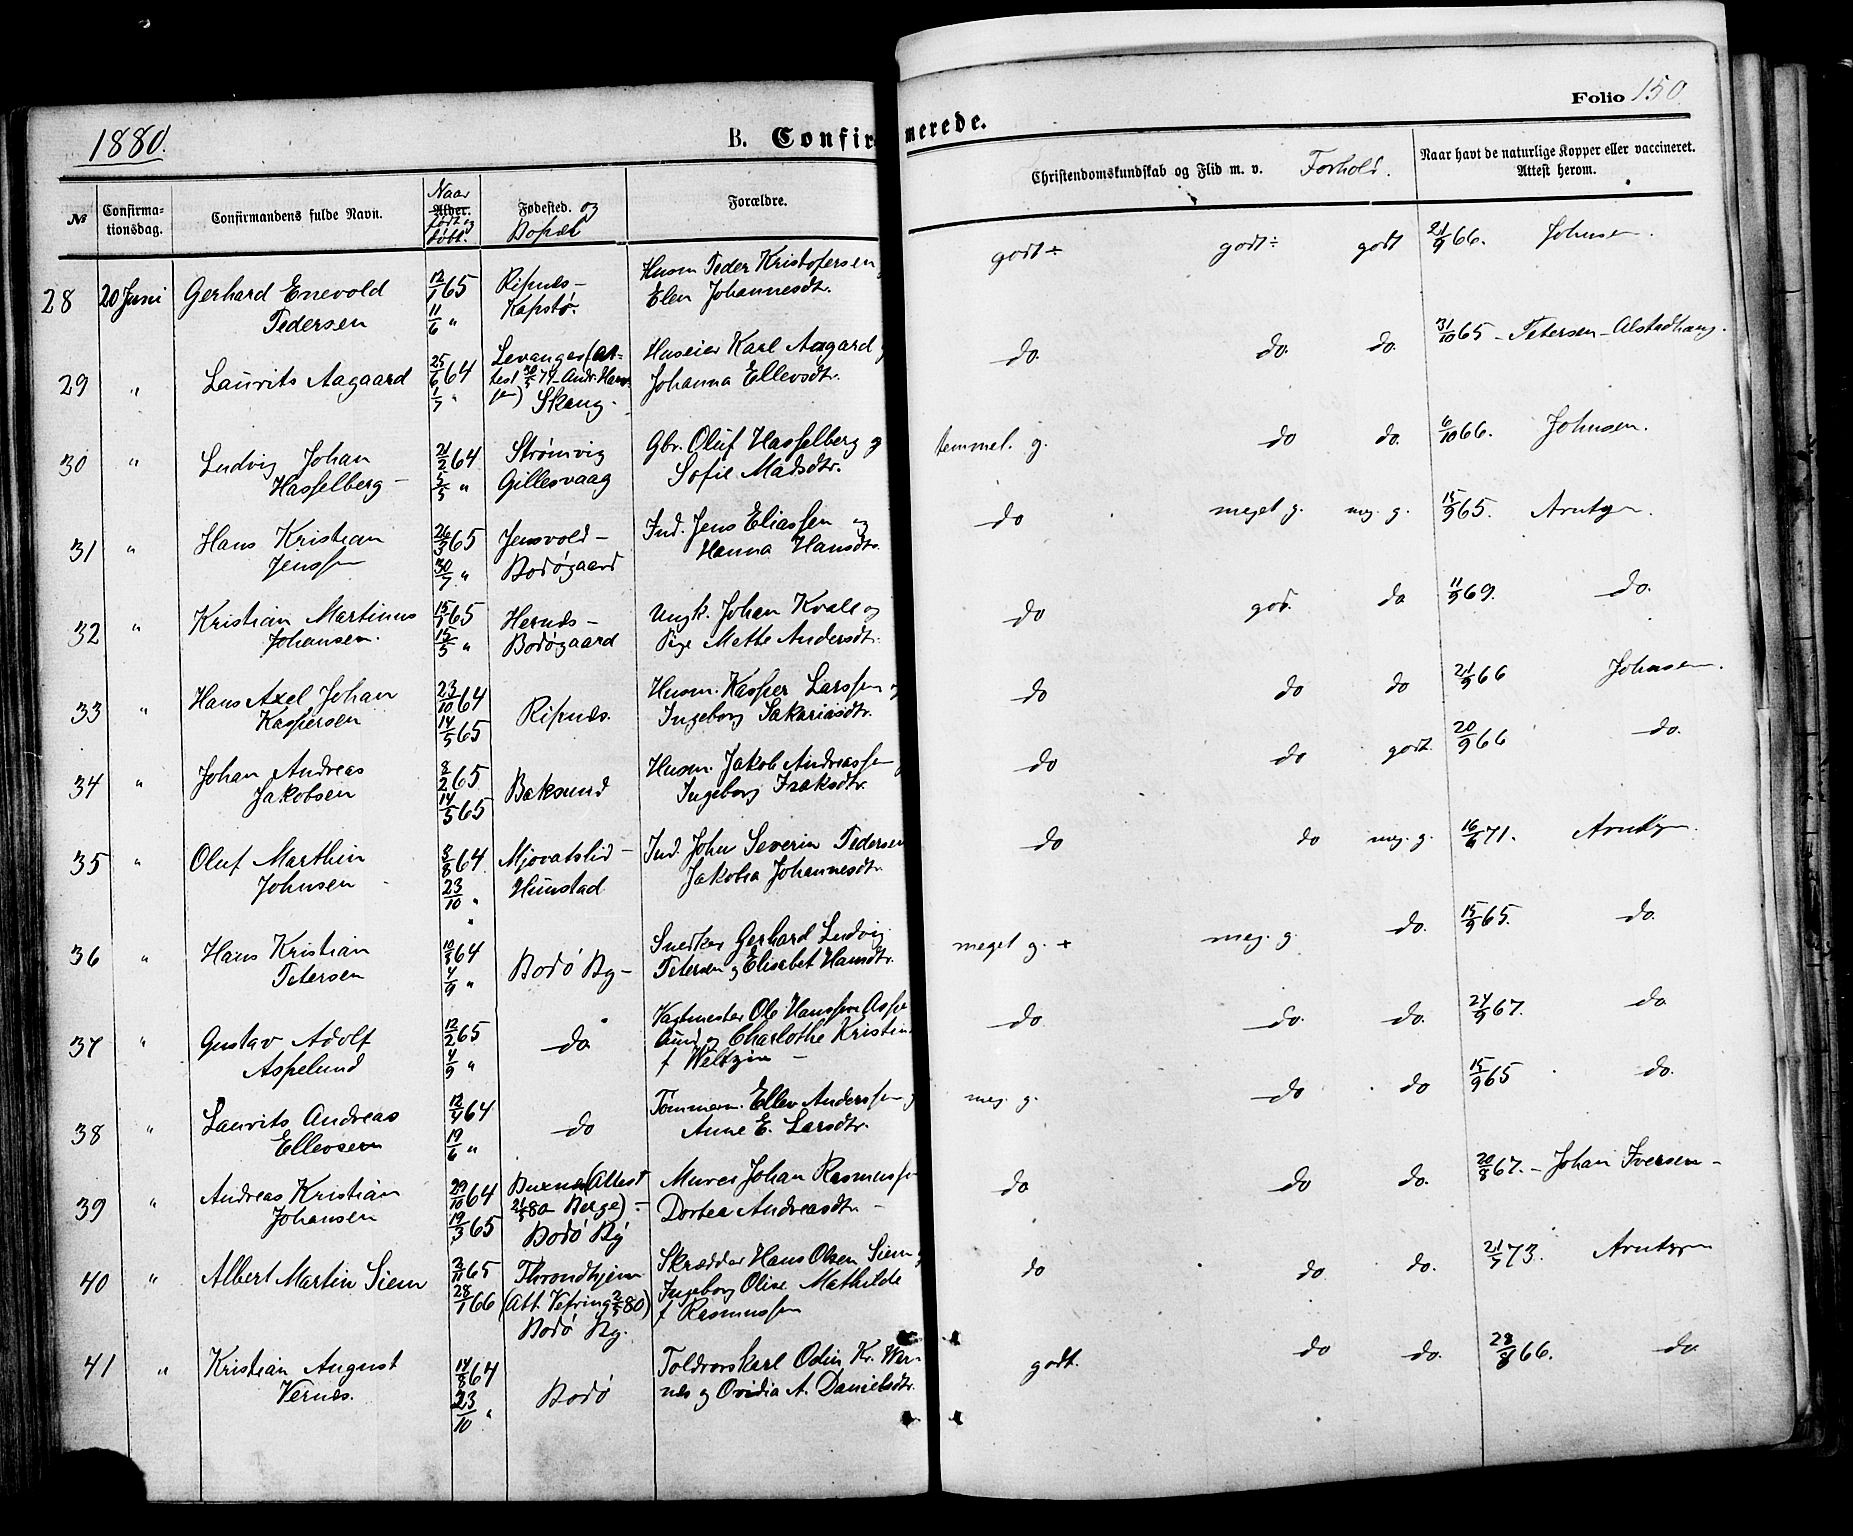 1880.
B. Confirmerede.
Folio 150
№
Confirmationsdag.
Confirmandens fulde Navn.
Naar
Alder.
født og
døbt.
Fødested. og
Bopæl
Forældre.
Christendomskundskab og Flid m. v. Forhold.
Naar havt de naturlige Kopper eller vaccineret.
Attest herom.
28 20 Juni Gerhard Enevold 12/1 65 Ripnes - Husm Peder Kristofersen godt ÷ godt ÷ godt 21/9 66. Johnsen.
Pedersen 11/6 " Kapstø. Elen Johannesdtr.
29 " Laurits Aagaard 25/6 64 Levanger (at- Huseier Karl Aagaard do. do. do. 31/10 65 - Petersen - Alstadhaug.
1/7 " test 79 - Andr. Skaug - Johanna Ellevsdtr.
30 " Ludvig Johan 21/2 64 Strømvig Gbr. Oluf Hasselberg og temmel. g. do do. 6/10 66. Johnsen.
Hasselberg - 5/5 " Gillesvaag Sofie Madsdtr.
31 " Hans Kristian 26/3 65 Jensvold - Ind. Jens Eliassen og do meget g. meg. g. 15/9 65. Arntzen.
Jenssen 30/7 " Bodøgaard Hanna Hansdtr.
32 " Kristian Martinus 15/1 65 Hernes - Ungk. Johan Kvale og do god. do 11/9 69. do.
Johansen. 15/5 " Bodøgaard Pige Mette Andersdtr.
33 " Hans Axel Johan 23/10 64 Ripnes. Husm. Kasper Larssen og do do do 21/9 66 Johnsen.
Kaspersen 14/5 65 Ingeborg Sakariasdtr.
34 " Johan Andreas 8/2 65 Baksund Husm. Jakob Andreassen do do godt. 20/9 66 do.
Jakobsen 14/5 65 Ingeborg Isaksdtr.
35 " Oluf Marthin 8/8 64 Mjovatslid - Ind. John Severin Pedersen do do meg. g. 16/9 71. Arntzen.
Johnsen 23/10 " Hunstad Jakobia Johannesdtr.
36 " Hans Kristian 10/3 64 Bodø By - Snedker Gerhard Ludvig meget g. + meg. g. do. 15/9 65. do.
Petersen 4/9 " Petersen og Elisabet Hansdtr.
37 " Gustav Adolf 12/2 65 do Vagtmester Ole Hanssen Aspe- do do. do. 24/9 67. do
Aspelund 4/9 " lund og Charlothe Kristine
f Weltzin -
38 " Laurits Andreas 12/4 64 do Tømmerm. Ellev Anderssen og meg. g. do do 15/9 65 do.
Ellevsen 19/6 " Anne E. Larsdtr.
39 " Andreas Kristian 29/10 64 Buxnes (Attest Murer Johan Rasmussen do do do. 20/8 67. - Johan Iversen -
Johansen 19/3 65 21/5 80 Berge) - Dortea Andreasdtr -
Bodø By
40 " Albert Martin Siem 2/11 65 Throndhjem Skrædder Hans Olsen Siem og do do do. 21/7 73. Arntzen
28/1 66 (Att. Vefring 2/5 80) Ingeborg Olise Mathilde
Bodø By. f Rasmussen
41 " Kristian August 14/8 64 Bodø Toldrorskarl Odin Kr. Wer- godt. do do. 28/8 66. do
Vernes. 23/10 " nes og Ovidia A. Danielsdtr.